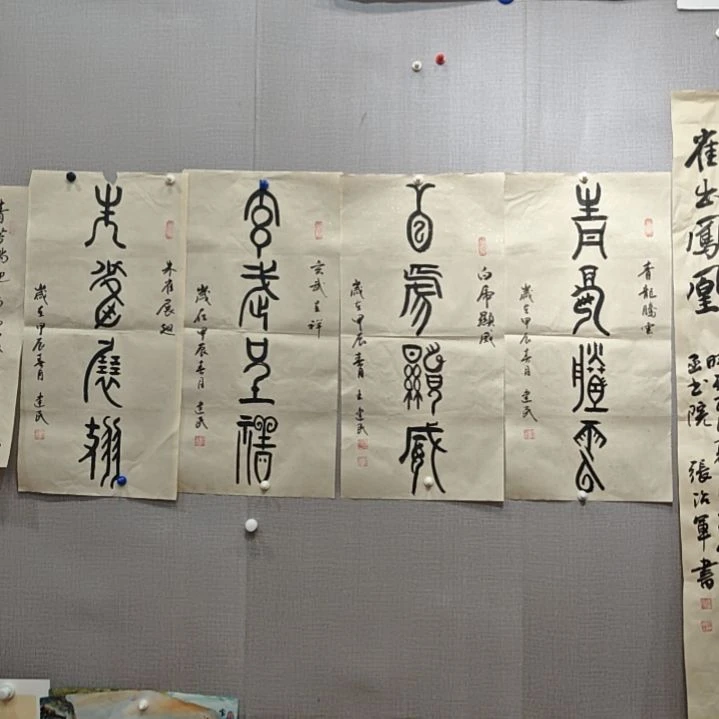 出鳳凰
書院 張治軍書
青龍騰雲
青龍騰雲
歲在甲辰春月 建民
白虎顯威
白虎顯威
歲在甲辰春月 王建民
玄武呈祥
玄武呈祥
歲在甲辰春月 建民
朱雀展翅
朱雀展翅
歲在甲辰春月 建民